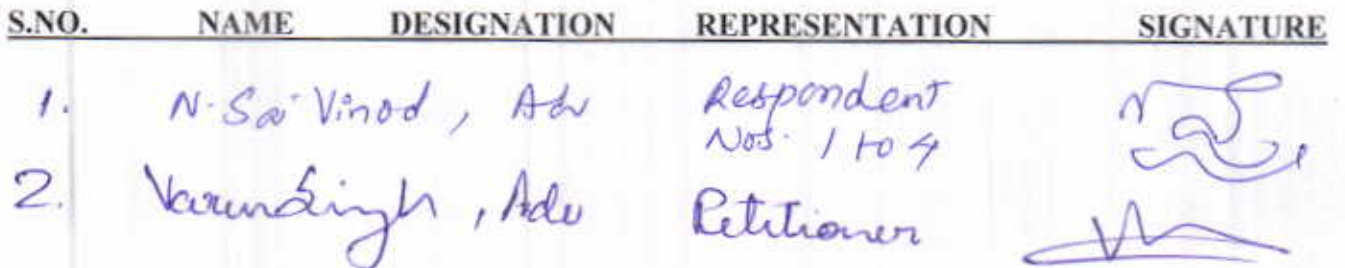 S.NO. NAME DESIGNATION REPRESENTATION SIGNATURE
1. N. Sai Vinod, Adv Respondent
Nos. 1 to 4
2. Varun Singh, Adv Petitioner